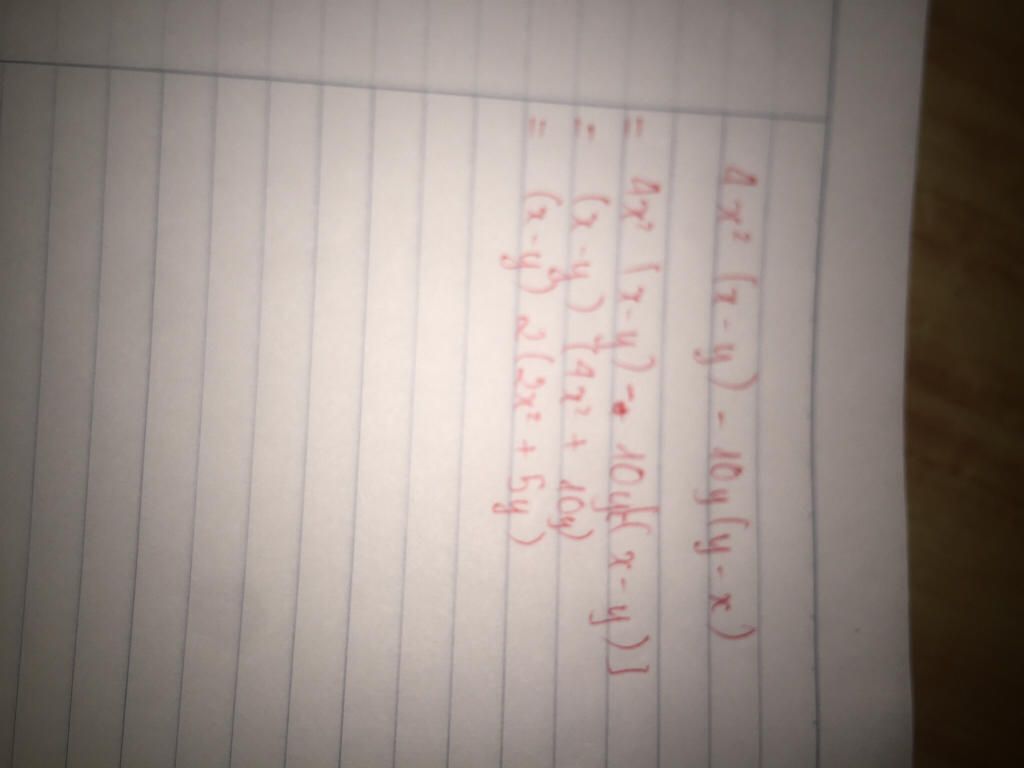 4x² (x - y) - 10y (y - x)
= 4x² (x - y) - 10y[-(x - y)]
= (x - y) (4x² + 10y)
= (x - y) 2(2x² + 5y)